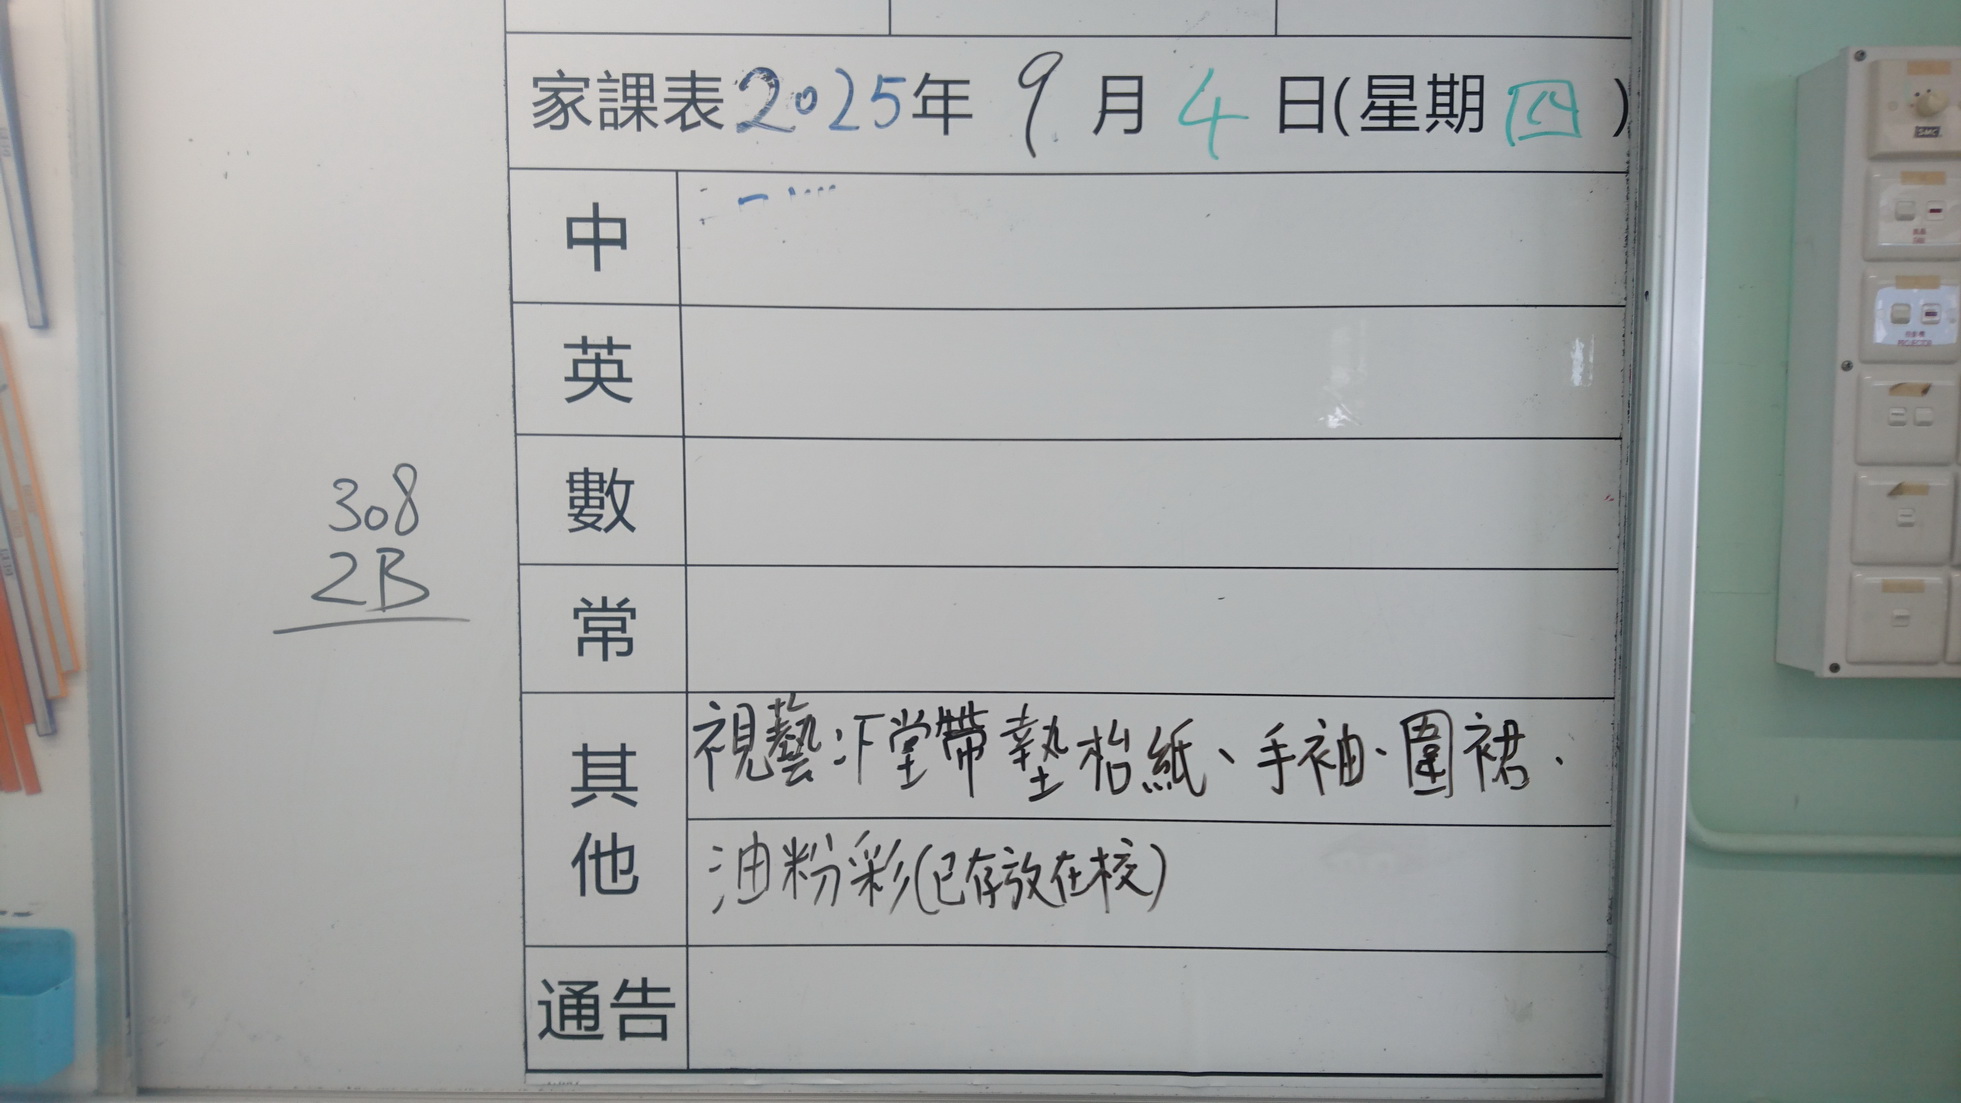 家課表2025年 9 月 4 日(星期四)
中
英
數
常
308
2B
其他
視藝:下堂帶墊枱紙、手袖、圍裙.
油粉彩(已存放在校)
通告